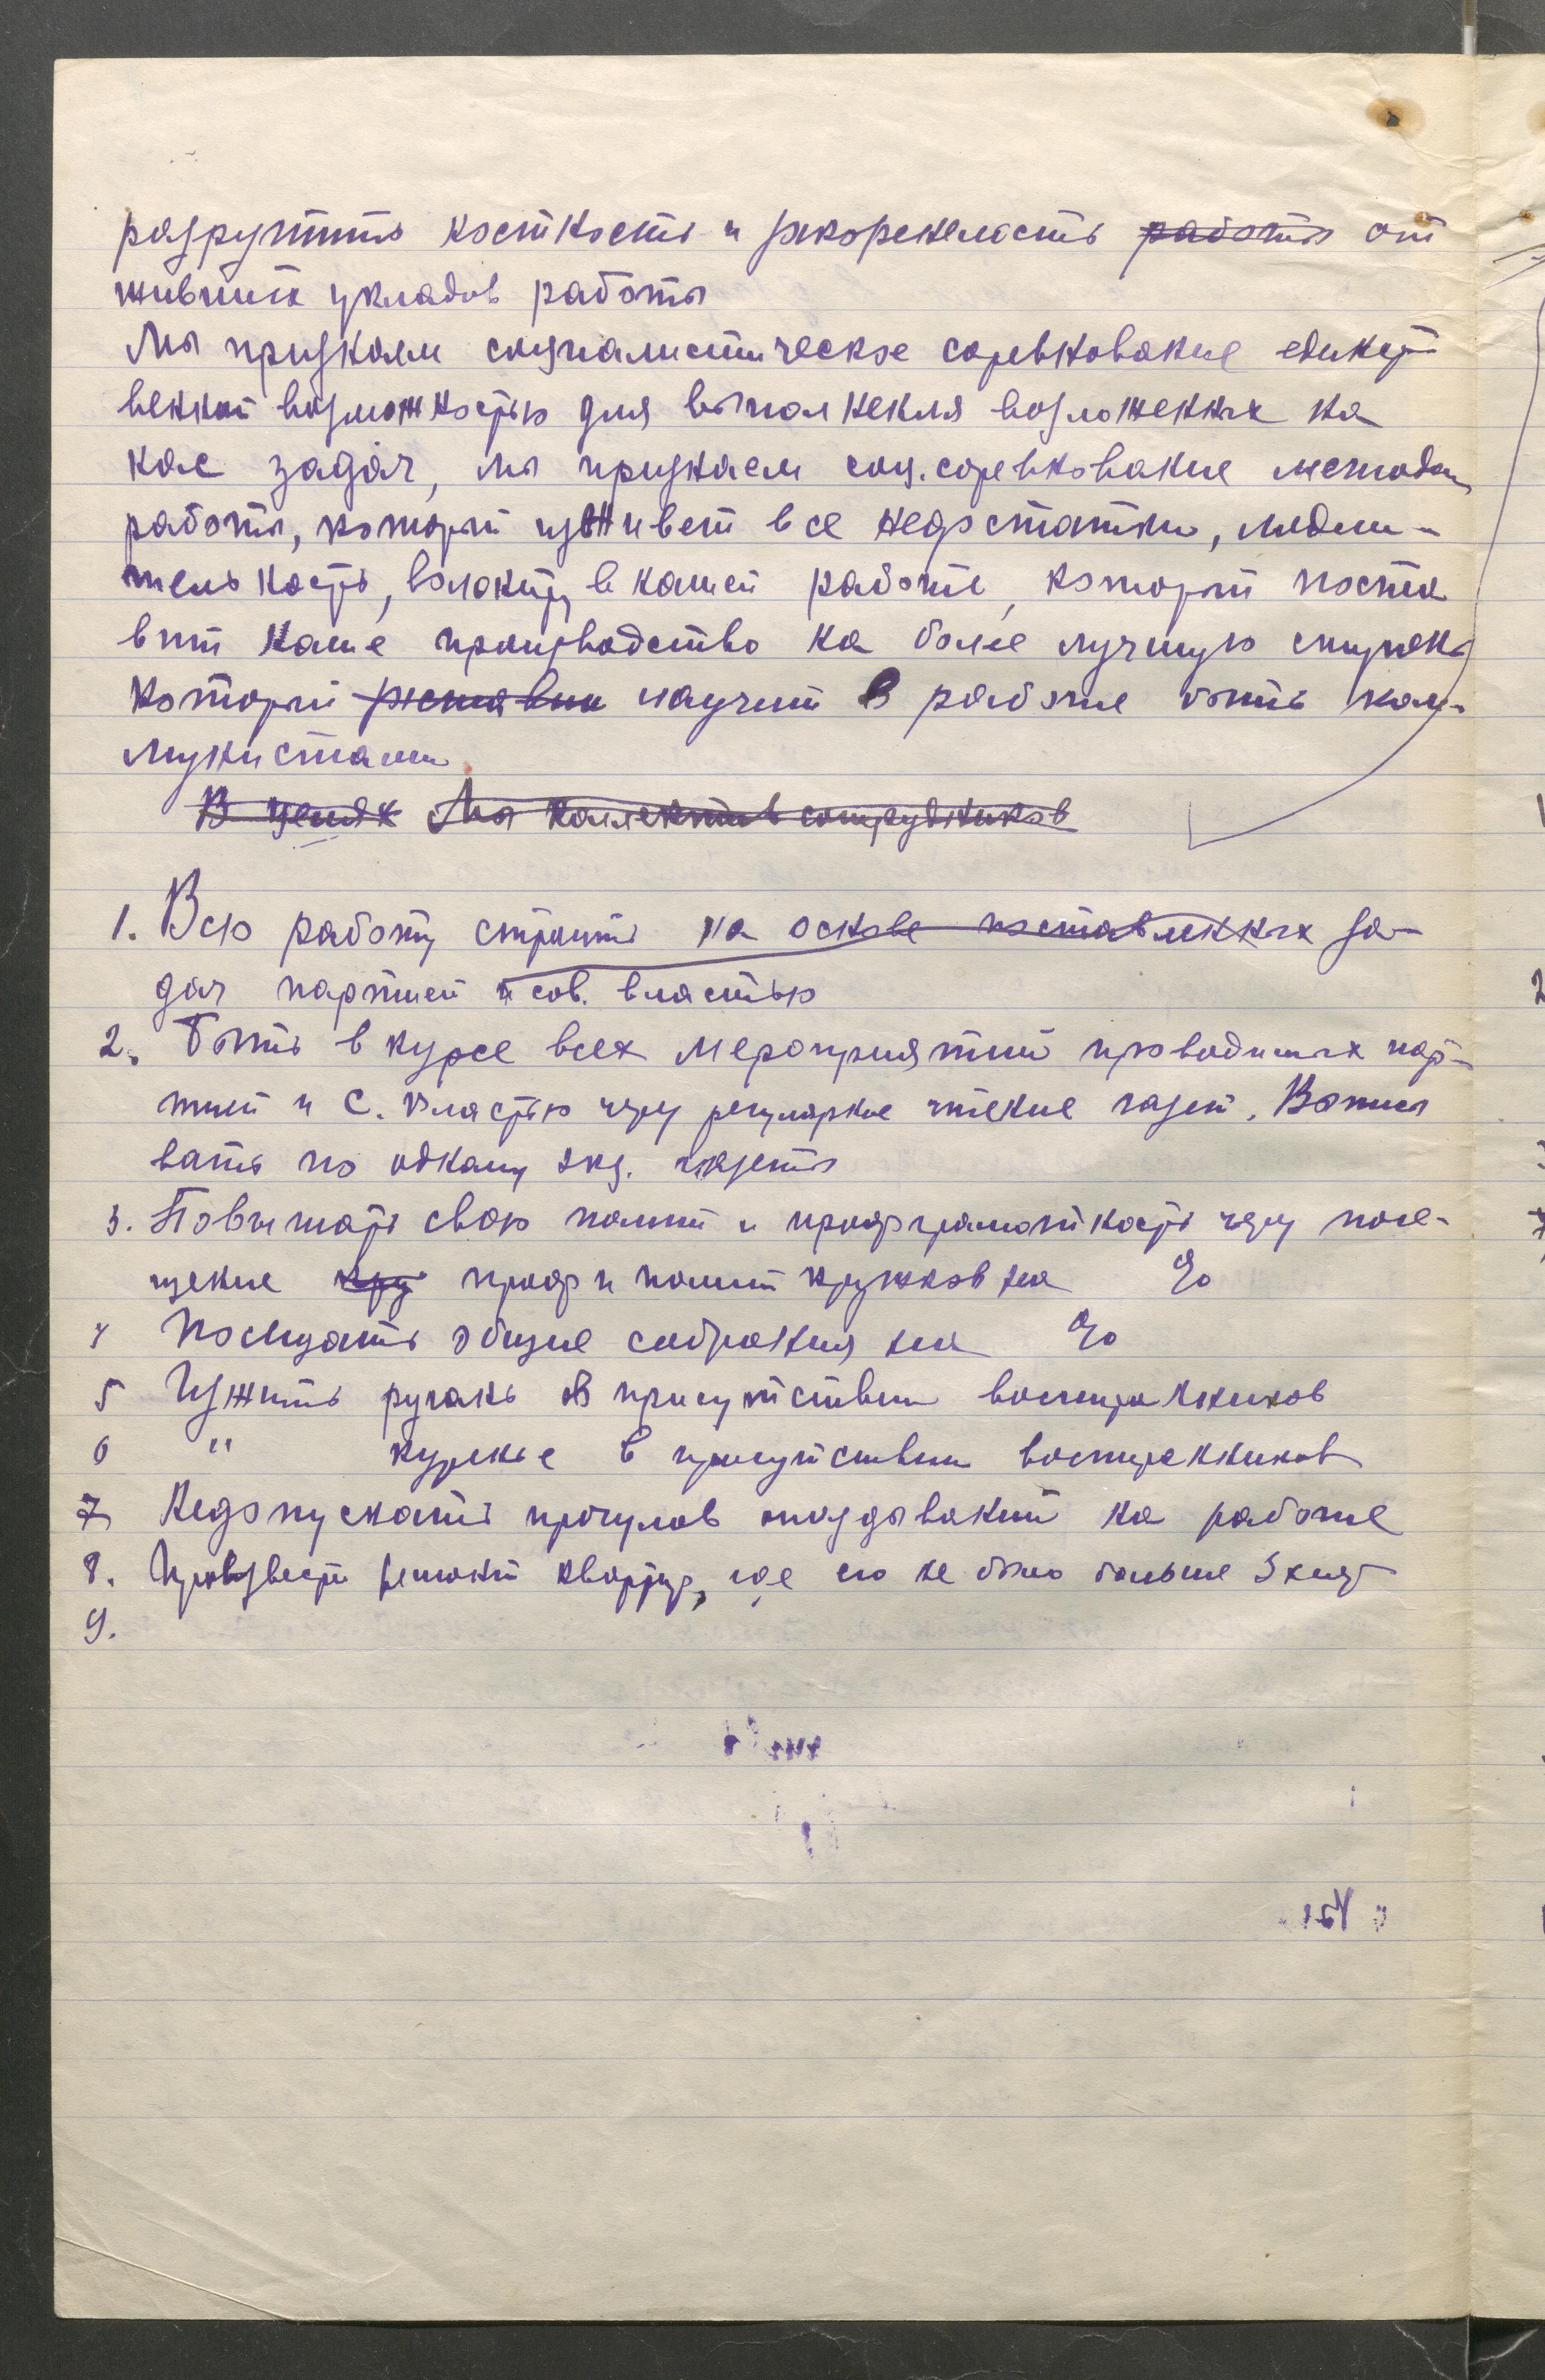 разрушить костность и закоренелость работы от
живших укладов работы
Мы признаем социалистическое соревнование единст
венной возможностью для выполнения возложенных на
нас задач, мы признаем соц. соревнование методом
работы, который изживет все недостатки, медли-
тельность, волокиту в нашей работе, который поста
вит наше производство на более лучшую ступень
который научит в работе быть ком-
мунистами
В целях Мы коллектив сотрудников
1. Всю работу строить на основе поставленных за-
дач партией и сов. властью
2. Быть в курсе всех мероприятий проводимых пар-
тией и С. Властью через регулярное чтение газет. Выписы
вать по одному экз. газеты
3. Повышать свою полит и профграмотность через посе-
щение кру проф и полит кружков на %
4 Посещать общие собрания на %
5 Изжить ругань в присутствии воспитанников
6 " курение в присутствии воспитанников
7 Недопускать прогулов опаздываний на работе
8. Произвести ремонт квартир, где его не было больше 3х лет
9.